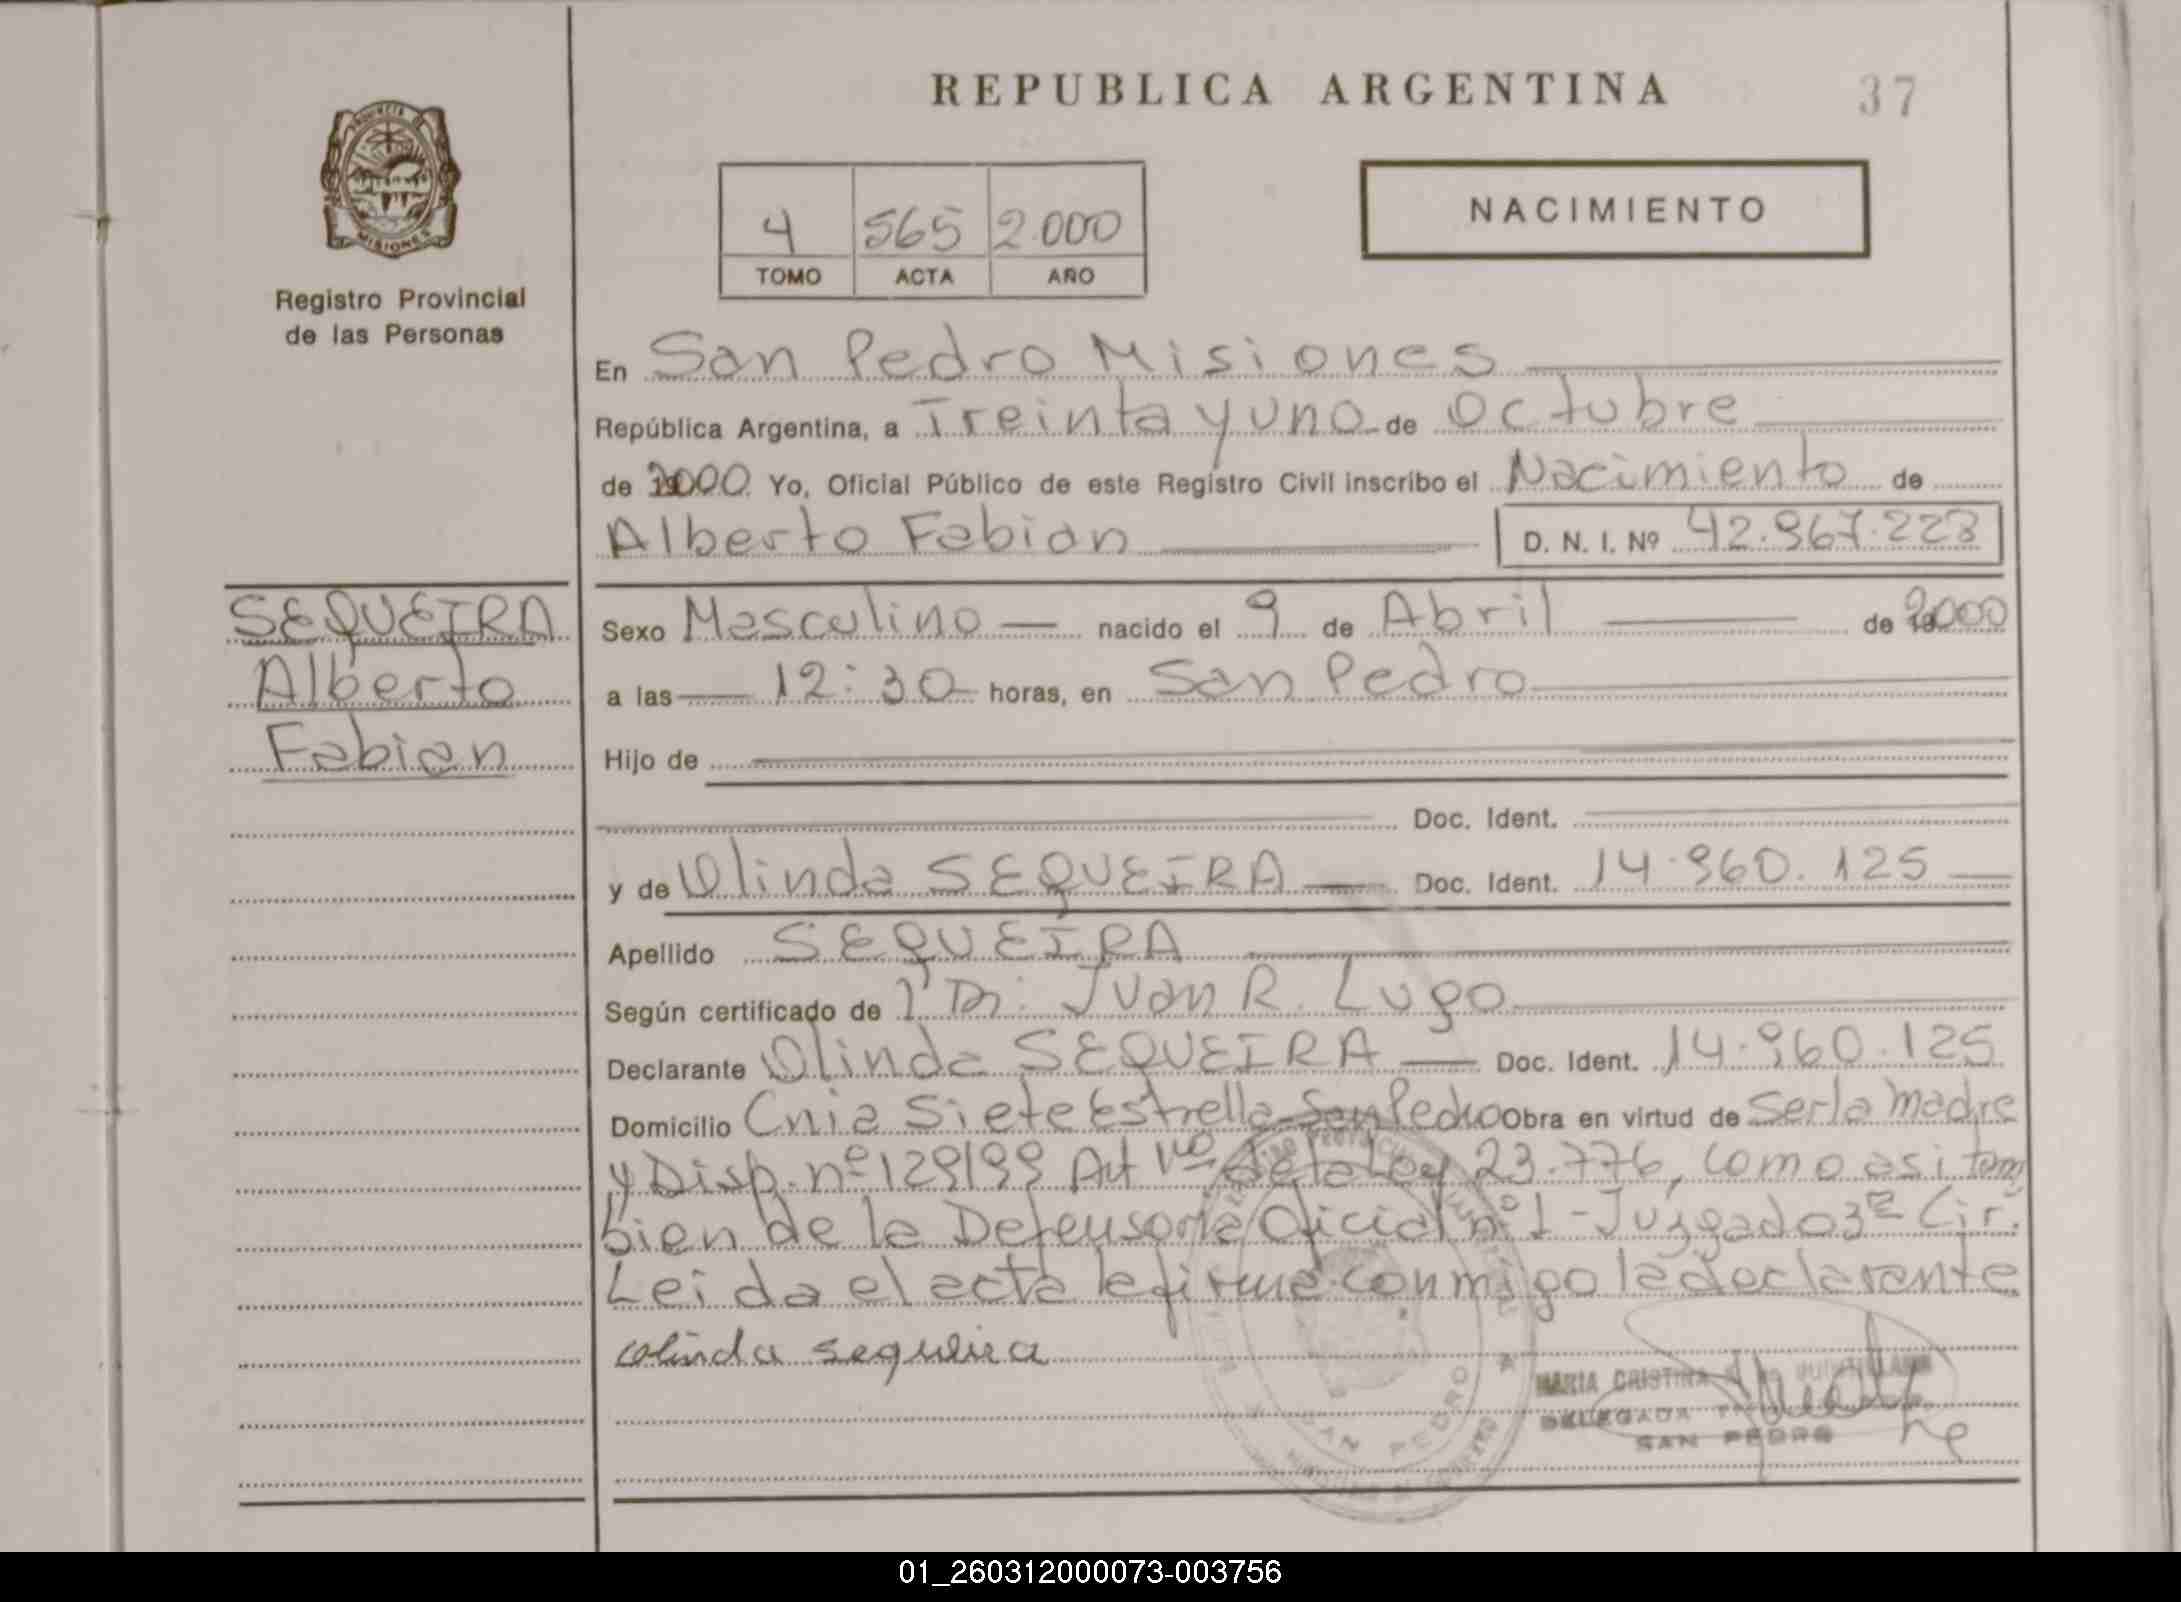 REPUBLICA ARGENTINA
37
PROVINCIA DE
MISIONES
Registro Provincial
de las Personas
4 565 2.000
TOMO ACTA AÑO
NACIMIENTO
En San Pedro Misiones
República Argentina, a Treinta y uno de Octubre
de 2000 Yo, Oficial Público de este Registro Civil inscribo el Nacimiento de
Alberto Fabian D. N. I. Nº 42.967.223
SEQUEIRA
Alberto
Fabian
Sexo Masculino nacido el 9 de Abril de 2000
a las 12:30 horas, en San Pedro
Hijo de
Doc. Ident.
y de Olinda SEQUEIRA Doc. Ident. 14.960.125
Apellido SEQUEIRA
Según certificado de Dr. Juan R. Lugo
Declarante Olinda SEQUEIRA Doc. Ident. 14.960.125
Domicilio Cnia Siete Estrella San Pedro Obra en virtud de Ser la madre
y Disp. nº 129/99 Art 1ro de la Ley 23.776, como asi tam
bien de la Defensoria Oficial nº 1 - Juzgado 3ª Cir.
Leida el acta la firma conmigo la declarante
olinda sequeira
MARIA CRISTINA
DELEGADA
SAN PEDRO
SAN PEDRO
01_260312000073-003756